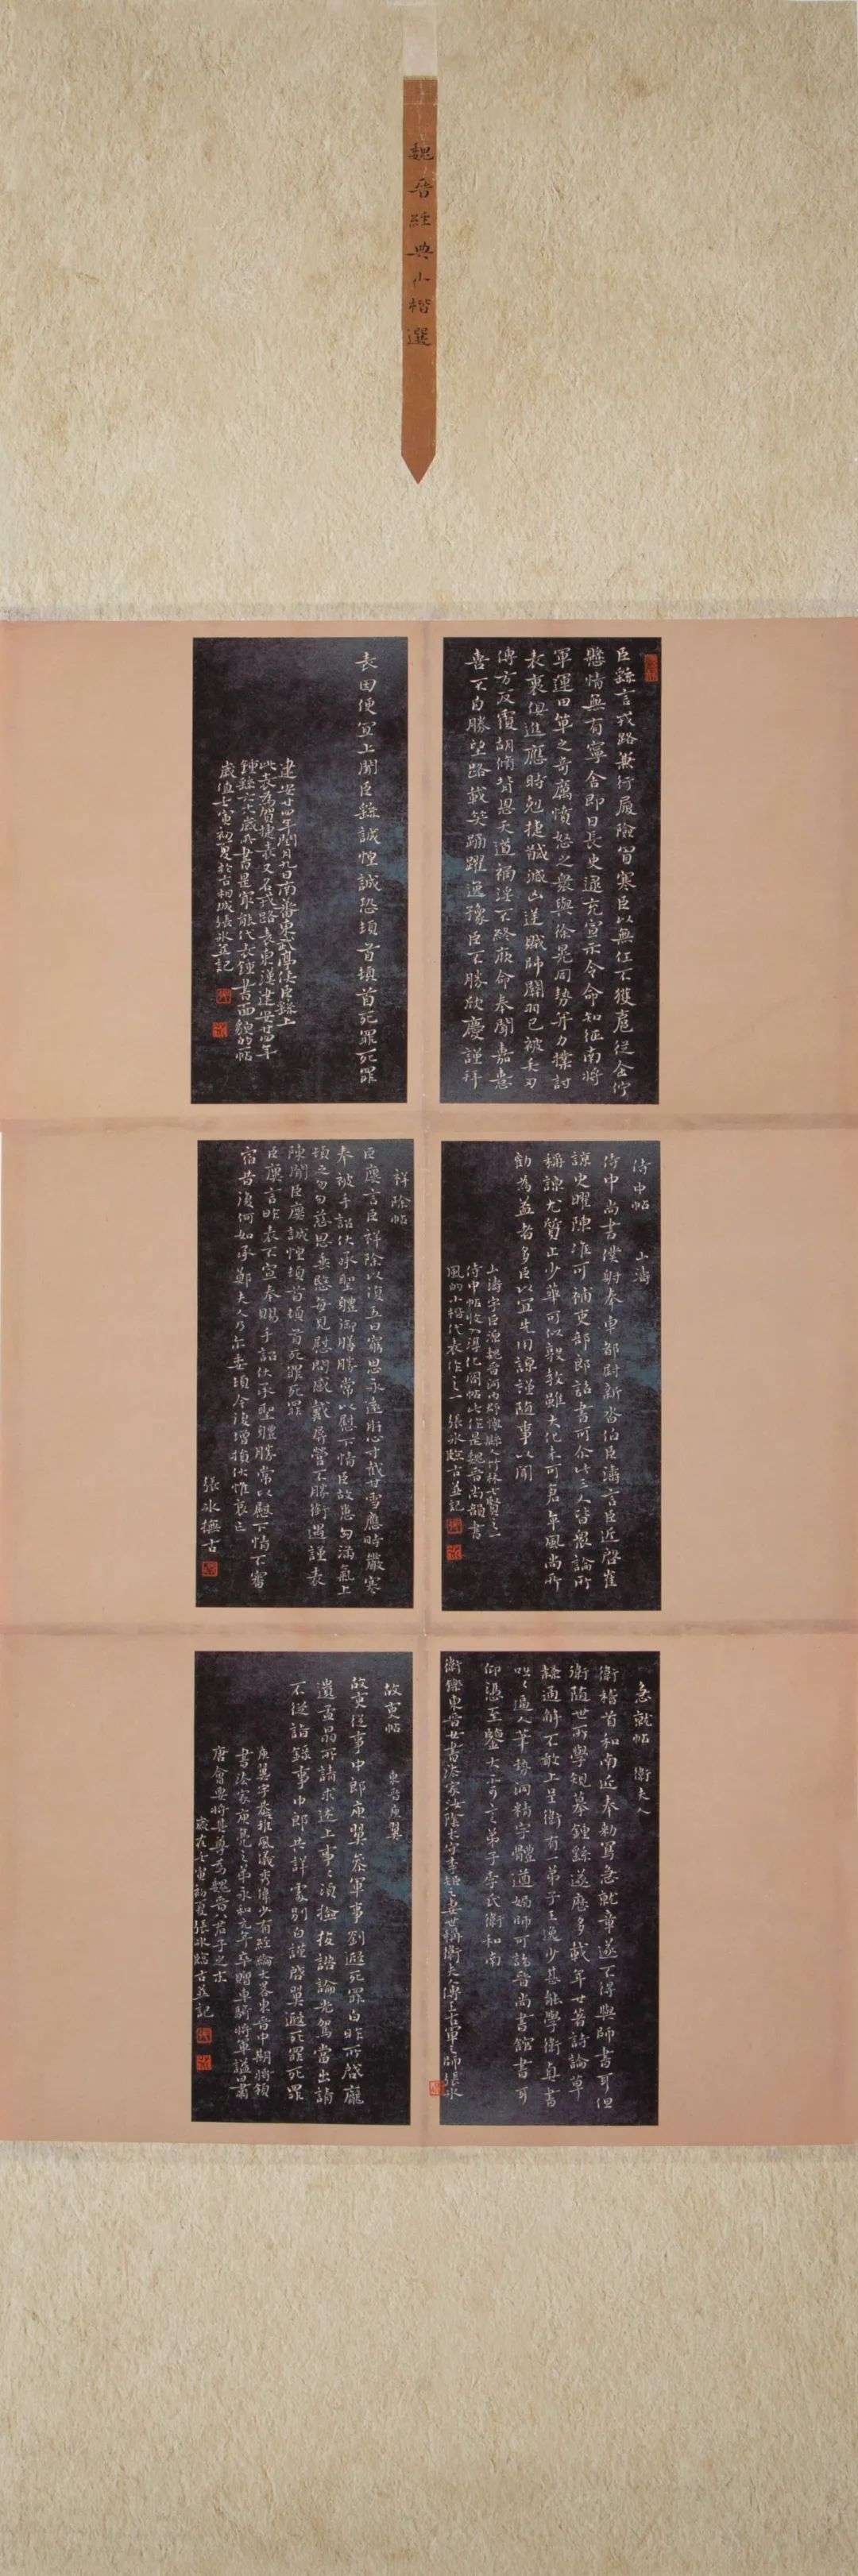 魏晉經典小楷選
臣繇言戎路兼行履險冒寒臣以無任不獲扈從企佇
懸情無有寧舍即日長史逯充宣示令命知征南將
軍運田單之奇厲憤怒之衆與徐晃同勢并力撲討
表裏俱進應時剋捷馘滅凶逆賊帥關羽已被矢刃
傅方反覆胡脩背恩天道禍淫不終厥命奉聞嘉憙
喜不自勝望路載笑踊躍逸豫臣不勝欣慶謹拜
表因便宜上聞臣繇誠惶誠恐頓首頓首死罪死罪
建安廿四年閏月九日南蕃東武亭侯臣繇上
此表為賀捷表又名戎路表東漢建安廿四年
鍾繇六十八歲所書是最能代表鍾書面貌的帖
歲值壬寅初夏於古相城張冰並記
侍中帖 山濤
侍中尚書僕射奉車都尉新沓伯臣濤言臣近啓崔
諒史曜陳准可補吏部郎詔書可尒此三人皆衆論所
稱諒尤質正少華可以敦教雖大化未可倉卒風尚所
勸為益者多臣以宜先用諒謹隨事以聞
山濤字巨源魏晉河內郡懷縣人竹林七賢之一
侍中帖收入淳化閣帖此作是魏晉尚韻書
風的小楷代表作之一 張冰臨古並記
祥除帖
臣廙言臣祥除以復五日窮思永遠肝心寸截甘雪應時嚴寒
奉被手詔伏承聖體御膳勝常以慰下情臣故患匈滿氣上
頓乏勿勿慈恩垂愍每見慰問感戴屏營不勝銜遇謹表
陳聞臣廙誠惶頓首頓首死罪死罪
臣廙言昨表不宣奉賜手詔伏承聖體勝常以慰下情不審
宿昔復何如承鄭夫人乃尒委頓今復增損伏惟哀亡
張冰撫古
急就帖 衛夫人
衛稽首和南近奉勑寫急就章遂不得與師書耳但
衛隨世所學規摹鍾繇遂歷多載年廿著詩論草
隸通解不敢上呈衛有一弟子王逸少甚能學衛真書
咄咄逼人筆勢洞精字體遒媚師可詣晉尚書館書耳
仰憑至鑒大不可言弟子李氏衛和南
衛鑠東晉女書法家汝陰太守李矩之妻世稱衛夫人傳王右軍之師張冰
故吏帖 東晉庾翼
故吏從事中郎庾翼參軍事劉遐死罪白昨所啓龐
遺孟晶所請求述上事事須撿校諮論光駕當出請
不從詣錄事中郎共詳處別白謹啓翼遐死罪死罪
庾翼字稚恭風儀秀偉少有經綸大略東晉中期將領
書法家庾亮之弟永和元年卒贈車騎將軍謚曰肅
唐會要將其尊為魏晉八君子之末
歲在壬寅初夏張冰臨古並記